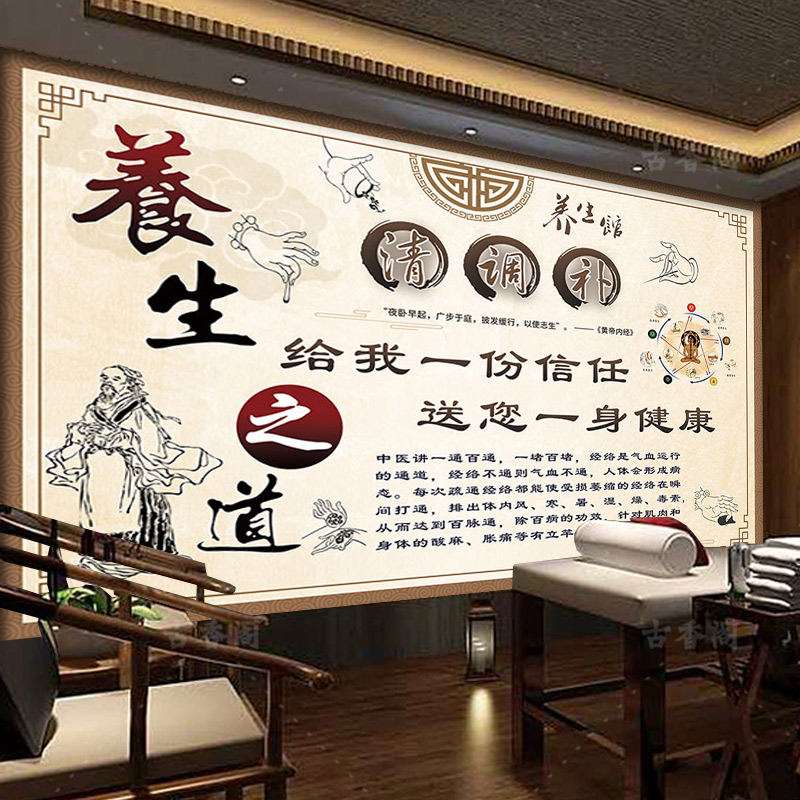 養生之道
养生馆
清调补
“夜卧早起，广步于庭，披发缓行，以使志生”。 ——《黄帝内经》
给我一份信任
送您一身健康
中医讲一通百通，一堵百堵，经络是气血运行
的通道，经络不通则气血不通，人体会形成病
态。每次疏通经络都能使受损萎缩的经络在瞬
间打通，排出体内风、寒、暑、湿、燥、毒素，
从而达到百脉通，除百病的功效，针对肌肉和
身体的酸麻、胀痛等有立竿
古香阁
古香阁
古香阁